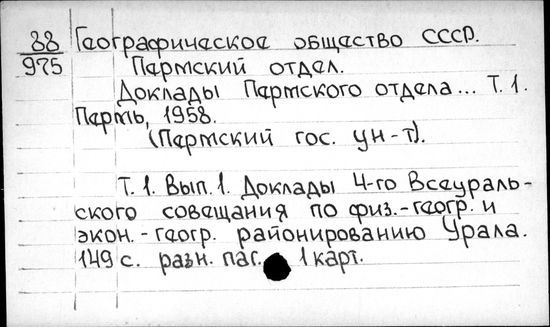 88 Географическое общество СССР.
975 Пермский отдел.
Доклады Пермского отдела... Т. 1.
Пермь, 1958.
(Пермский гос. ун-т).
Т. 1. Вып. 1. Доклады 4-го Всеураль-
ского совещания по физ.-геогр. и
экон.-геогр. районированию Урала.
149 с. разн. паг. 1 карт.